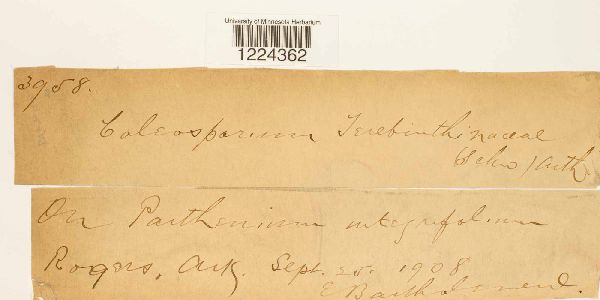 University of Minnesota Herbarium
1224362
3958.
Coleosporium Terebinthinaceae
(Schw) Arth.
On Parthenium integrifolium
Rogers, Ark. Sept. 25. 1908
E Bartholomew.